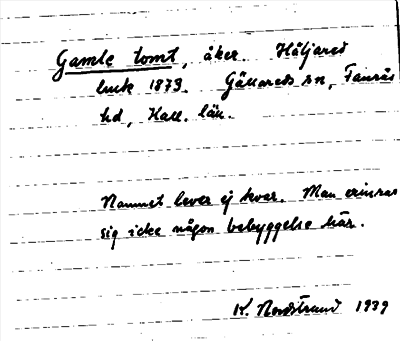 Gamle tomt, åker. Häljared
lmsk 1873. Gällareds sn, Faurås
hd, Hall. län.
Namnet lever ej kvar. Man erinrar
sig icke någon bebyggelse här.
K. Nordstrand 1939